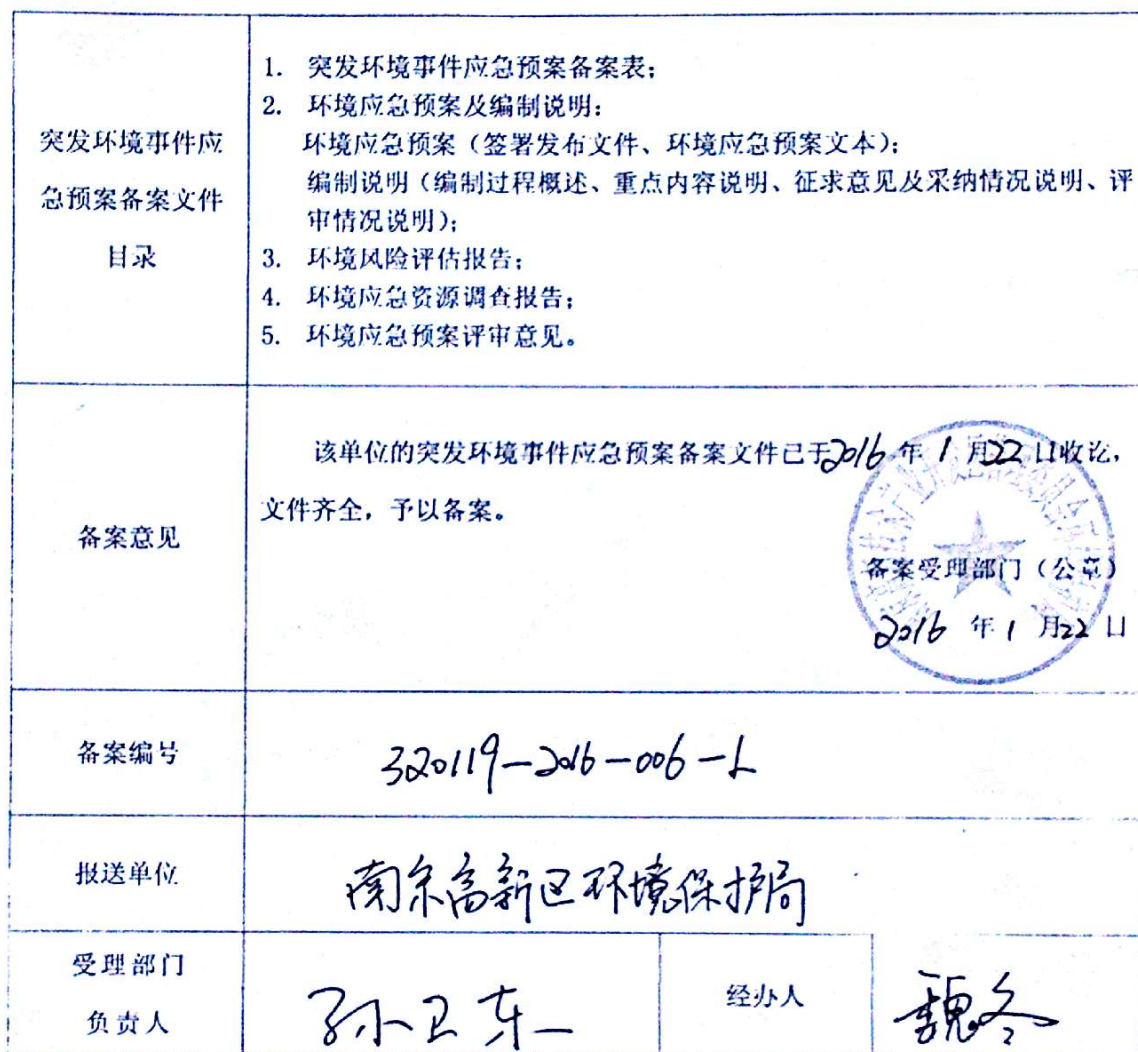 突发环境事件应
急预案备案文件
目录
1. 突发环境事件应急预案备案表;
2. 环境应急预案及编制说明:
环境应急预案(签署发布文件、环境应急预案文本);
编制说明(编制过程概述、重点内容说明、征求意见及采纳情况说明、评
审情况说明);
3. 环境风险评估报告;
4. 环境应急资源调查报告;
5. 环境应急预案评审意见。
备案意见
该单位的突发环境事件应急预案备案文件已于2016年1月22日收讫,
文件齐全,予以备案。
备案受理部门(公章)
2016 年 1 月 22 日
备案编号
320119-2016-006-L
报送单位
南京高新区环境保护局
受理部门
负责人
孙卫东
经办人
魏冬